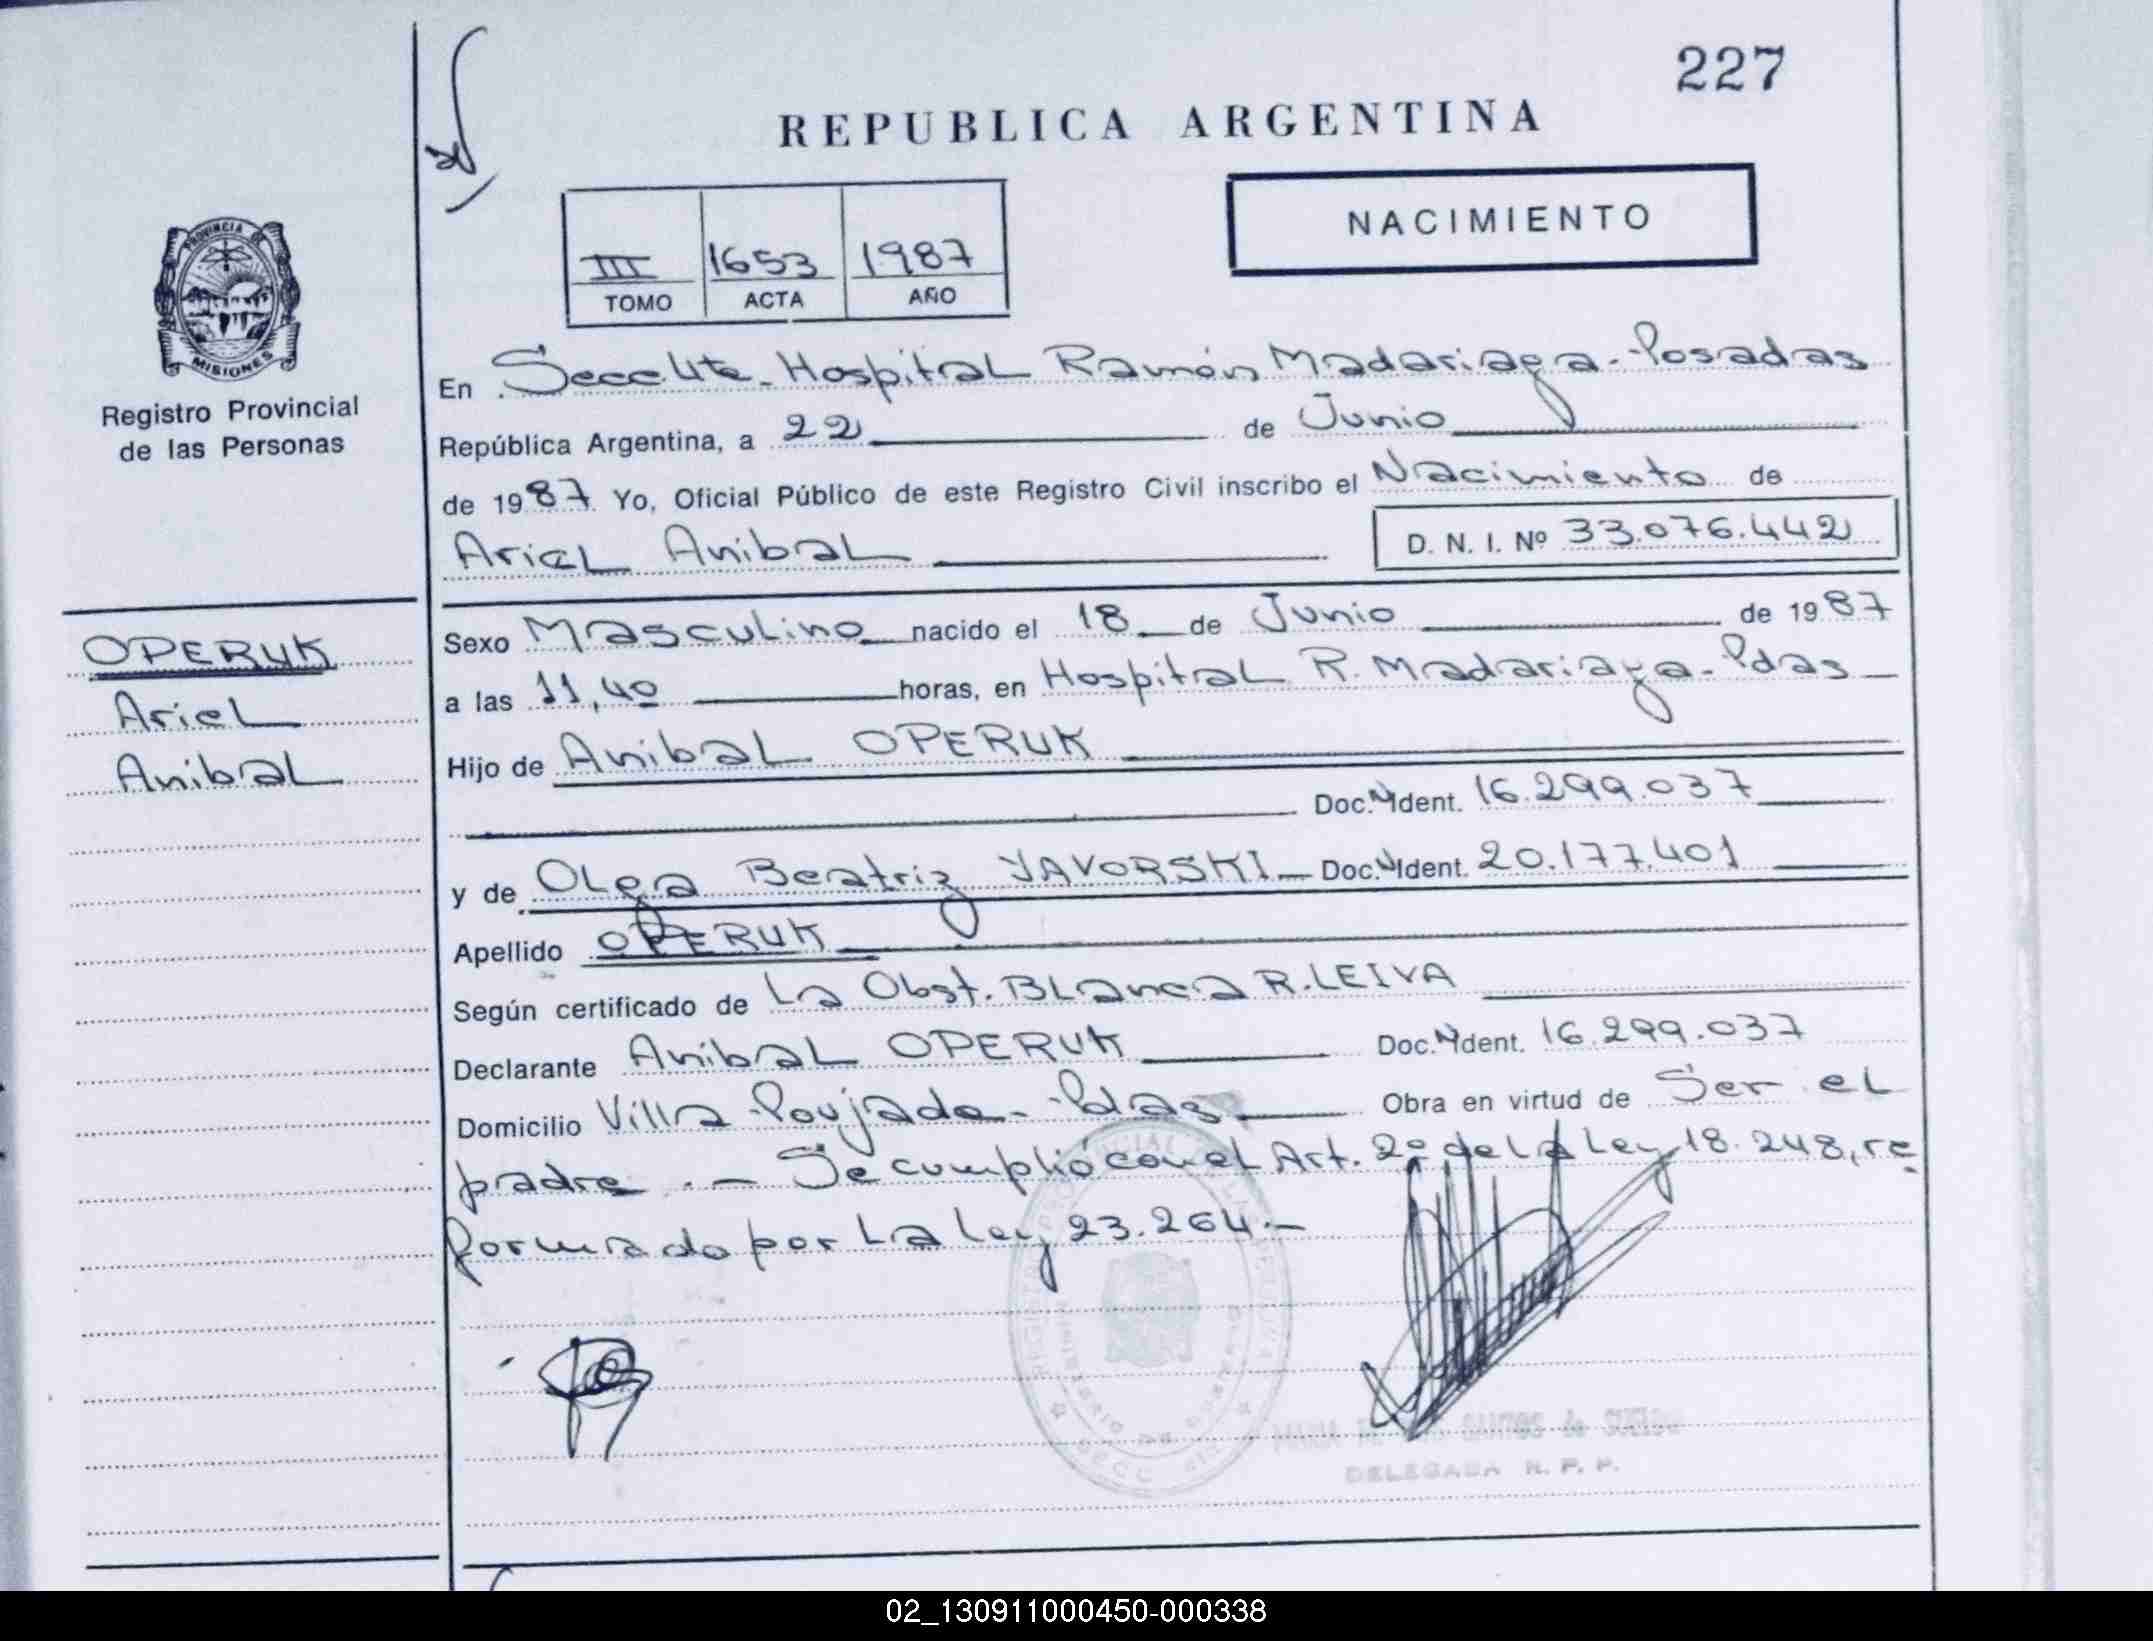 227
REPUBLICA ARGENTINA
NACIMIENTO
III 1653 1987
TOMO ACTA AÑO
PROVINCIA DE
MISIONES
Registro Provincial
de las Personas
OPERUK
Ariel
Anibal
En Hospital Ramón Madariaga - Posadas
República Argentina, a 22 de Junio
de 1987 Yo, Oficial Público de este Registro Civil inscribo el Nacimiento de
Ariel Anibal D. N. I. Nº 33.076.442
Sexo Masculino nacido el 18 de Junio de 1987
a las 11,40 horas, en Hospital R. Madariaga - Pdas
Hijo de Anibal OPERUK
Doc. N Ident. 16.299.037
y de Olga Beatriz YAVORSKI Doc. N Ident. 20.177.401
Apellido OPERUK
Según certificado de La Obst. Blanca R. LEIVA
Declarante Anibal OPERUK Doc. N Ident. 16.299.037
Domicilio Villa Poujade - Pdas Obra en virtud de Ser el
padre .- Se cumplió con el Art. 2º de la Ley 18.248, re
formado por la Ley 23.264.-
DELEGADA R. P. P.
02_130911000450-000338